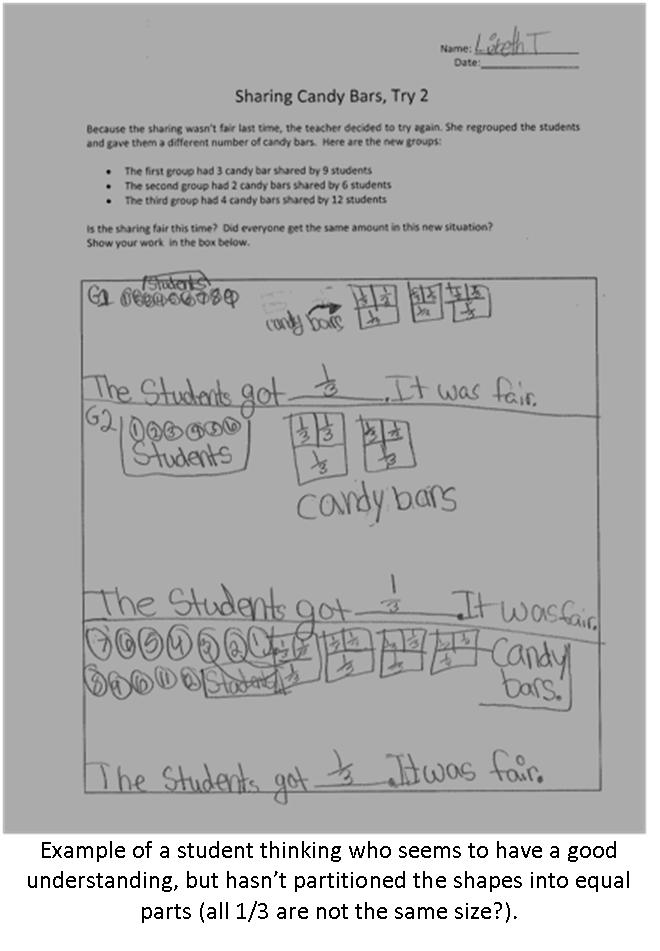 Name: Lizbeth T
Date:
Sharing Candy Bars, Try 2
Because the sharing wasn't fair last time, the teacher decided to try again. She regrouped the students
and gave them a different number of candy bars. Here are the new groups:
• The first group had 3 candy bar shared by 9 students
• The second group had 2 candy bars shared by 6 students
• The third group had 4 candy bars shared by 12 students
Is the sharing fair this time? Did everyone get the same amount in this new situation?
Show your work in the box below.
Students
G1 1 2 3 4 5 6 7 8 9
candy bars 1/3 1/3 1/3 1/3 1/3 1/3 1/3 1/3 1/3
The Students got 1/3. It was fair.
G2 1 2 3 4 5 6 1/3 1/3 1/3 1/3 1/3 1/3
Students
candy bars
The Students got 1/3. It was fair.
7 6 5 4 3 2 1 1/3 1/3 1/3 1/3 1/3 1/3 1/3 1/3 1/3 1/3 1/3 1/3 Candy
8 9 10 11 12 Students bars.
The Students got 1/3. It was fair.
Example of a student thinking who seems to have a good
understanding, but hasn't partitioned the shapes into equal
parts (all 1/3 are not the same size?).